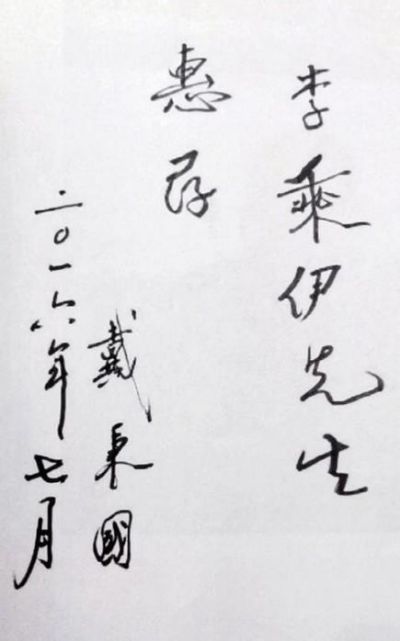 李乘伊先生
惠存
戴東國
二0一六年七月